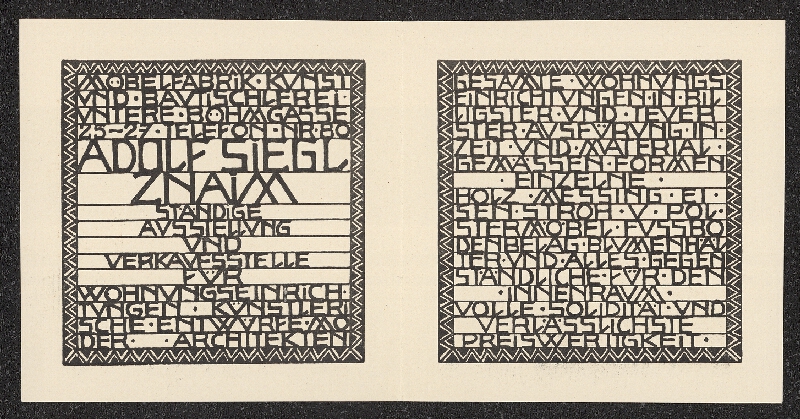 MÖBELFABRIK · KVNST
VND · BAVTISCHLEREI ·
VNTERE · BÖHMGASSE
25–27 · TELEFON · NR · 80
ADOLF SIEGL
ZNAIM
STÄNDIGE
AVSSTELLVNG
VND
VERKAVFSSTELLE
FÜR
WOHNVNGSEINRICH
TVNGEN · KÜNSTLERI
SCHE · ENTWÜRFE · MO
DER · ARCHITEKTEN
GESAMTE · WOHNVNGS
EINRICHTVNGEN · IN · BIL
LIGSTER · VND · TEVER
STER · AVSFÜRVNG · IN ·
ZEIT · VND · MATERIAL ·
GEMÄSSEN · FORMEN
· EINZELNE ·
HOLZ · MESSING · EI ·
SEN · STROH · V · POL ·
STERMÖBEL · FVSSBO
DENBELAG · BLVMENHÄL
TER · VND · ALLES · GEGEN
STÄNDLICHE · FÜR · DEN
· INNENRAVM ·
VOLLE · SOLIDITÄT · VND
VERLÄSSLICHSTE
PREISWERTIGKEIT ·